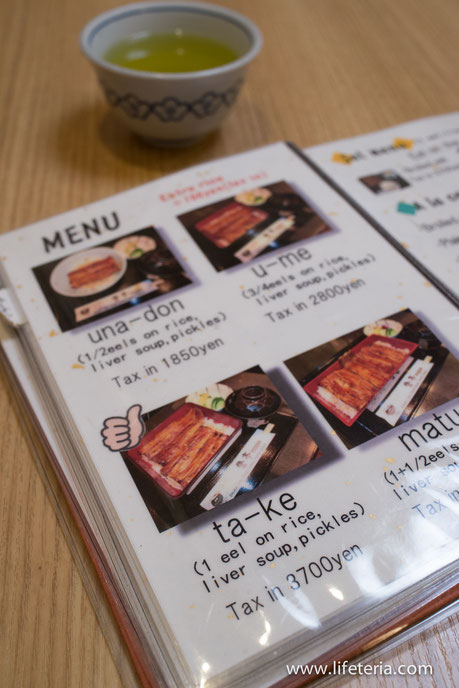 MENU
Extra rice
una-don
(1/2eels on rice,
liver soup,pickles)
Tax in 1850yen
u-me
(3/4eels on rice,
liver soup,pickles)
Tax in 2800yen
ta-ke
(1 eel on rice,
liver soup,pickles)
Tax in 3700yen
matu
(1+1/2eel
liver sou
Tax in
www.lifeteria.com